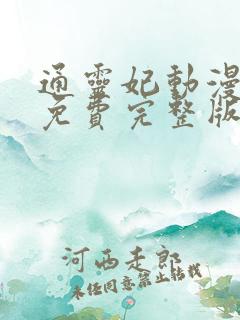 通靈妃動漫
免費完整版
河西走郎
未经同意禁止转载